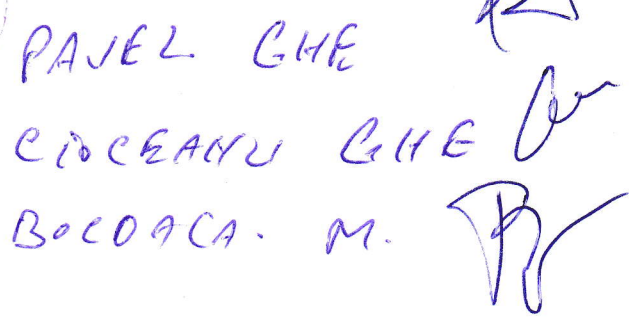 PAVEL GHE
CIOCEANU GHE
BOCOACA. M.